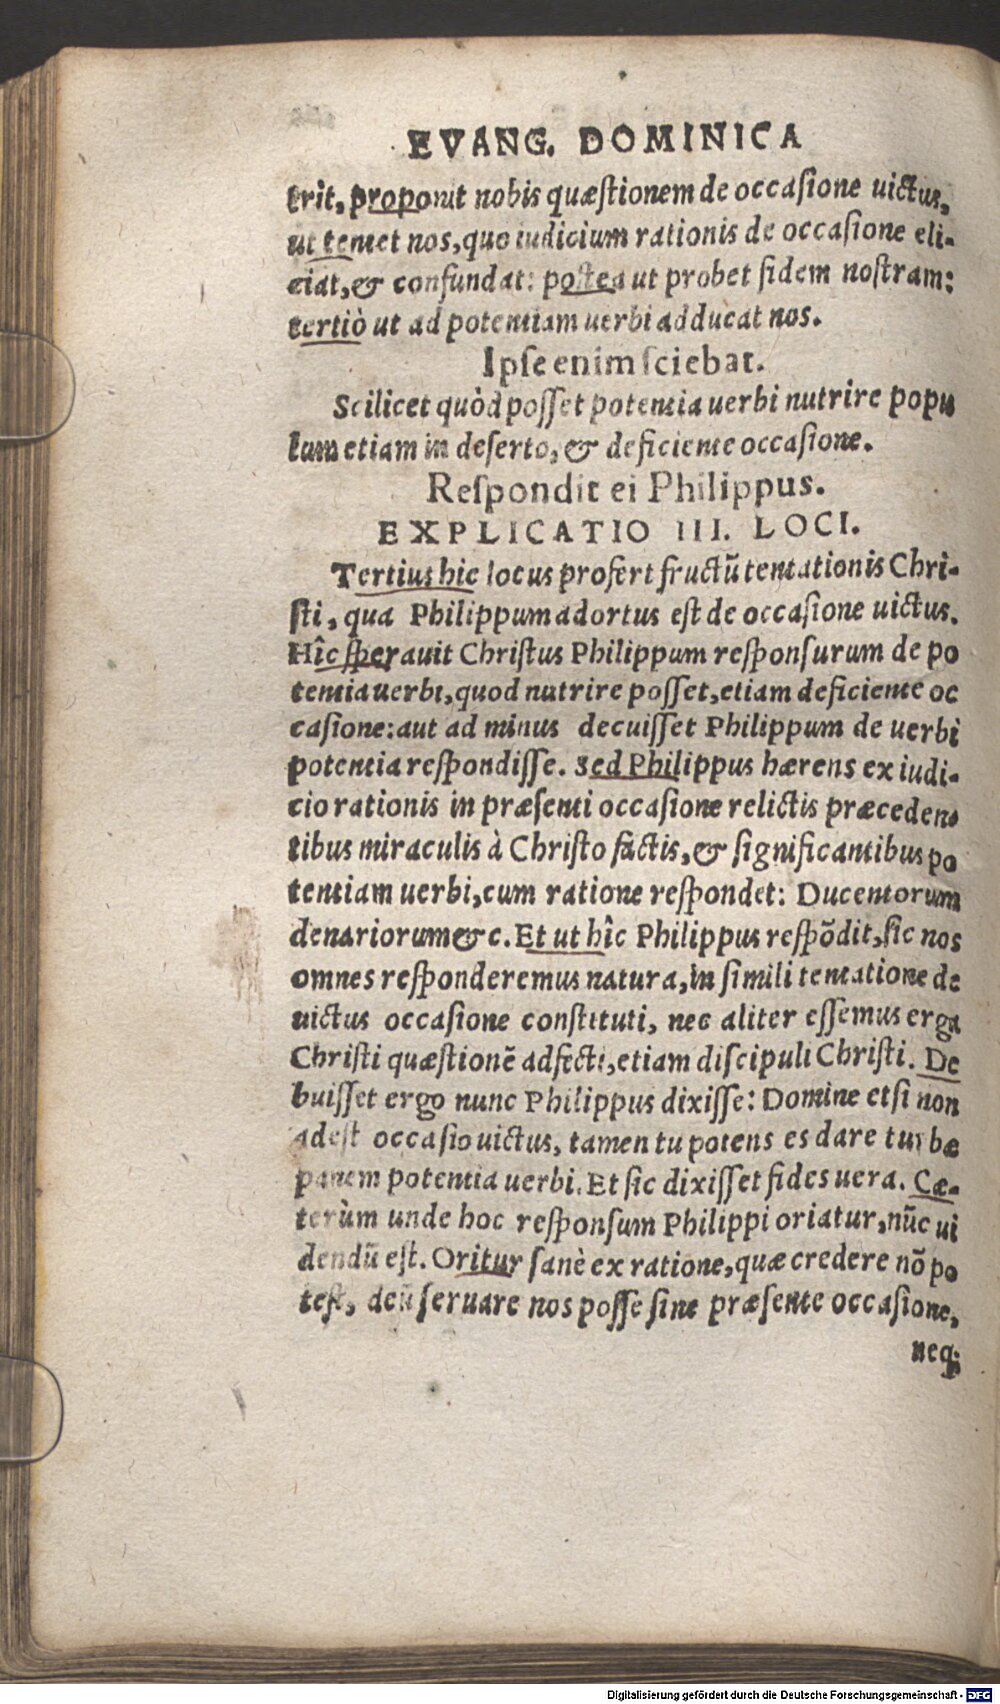 EVANG. DOMINICA
trit, proponit nobis quæstionem de occasione uictus,
ut tentet nos, quo iudicium rationis de occasione eli-
ciat, & confundat: postea ut probet fidem nostram:
tertiò ut ad potentiam uerbi adducat nos.
Ipse enim sciebat.
Scilicet quòd posset potentia uerbi nutrire popu
lum etiam in deserto, & deficiente occasione.
Respondit ei Philippus.
EXPLICATIO III. LOCI.
Tertius hic locus profert fructũ tentationis Chri-
sti, qua Philippum adortus est de occasione uictus.
Hîc sperauit Christus Philippum responsurum de po
tentia uerbi, quod nutrire posset, etiam deficiente oc
casione: aut ad minus decuisset Philippum de uerbi
potentia respondisse. Sed Philippus hærens ex iudi-
cio rationis in præsenti occasione relictis præceden-
tibus miraculis à Christo factis, & significantibus po
tentiam uerbi, cum ratione respondet: Ducentorum
denariorum &c. Et ut hîc Philippus respõdit, sic nos
omnes responderemus natura, in simili tentatione de
uictus occasione constituti, nec aliter essemus erga
Christi quæstionẽ adfecti, etiam discipuli Christi. De
buisset ergo nunc Philippus dixisse: Domine etsi non
adest occasio uictus, tamen tu potens es dare turbæ
panem potentia uerbi. Et sic dixisset fides uera. Cæ-
terùm unde hoc responsum Philippi oriatur, nũc ui
dendũ est. Oritur sanè ex ratione, quæ credere nõ po
test, deũ seruare nos posse sine præsente occasione,
neq;
Digitalisierung gefördert durch die Deutsche Forschungsgemeinschaft - DFG